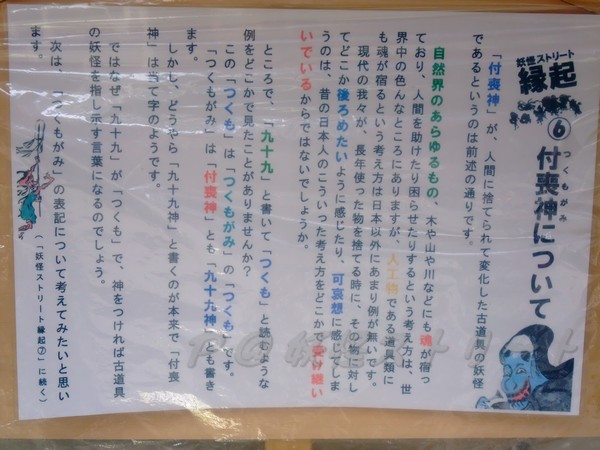 妖怪ストリート
縁起
⑥付喪神について
つくもがみ
「付喪神」が、人間に捨てられて変化した古道具の妖怪
であるというのは前述の通りです。
自然界のあらゆるもの、木や山や川などにも魂が宿っ
ており、人間を助けたり困らせたりするという考え方は、世
界中の色んなところにありますが、人工物である道具類に
も魂が宿るという考え方は日本以外にあまり例が無いです。
現代の我々が、長年使った物を捨てる時に、その物に対し
てどこか後ろめたいように感じたり、可哀想に感じてしま
うのは、昔の日本人のこういった考え方をどこかで受け継い
でいるからではないでしょうか。
ところで、「九十九」と書いて「つくも」と読むような
例をどこかで見たことがありませんか？
この「つくも」は「つくもがみ」の「つくも」です。
「つくもがみ」は「付喪神」とも「九十九神」とも書き
ます。
しかし、どうやら「九十九神」と書くのが本来で「付喪
神」は当て字のようです。
ではなぜ「九十九」が「つくも」で、神をつければ古道具
の妖怪を指し示す言葉になるのでしょう。
次は、「つくもがみ」の表記について考えてみたいと思い
ます。
（「妖怪ストリート縁起⑦」に続く）